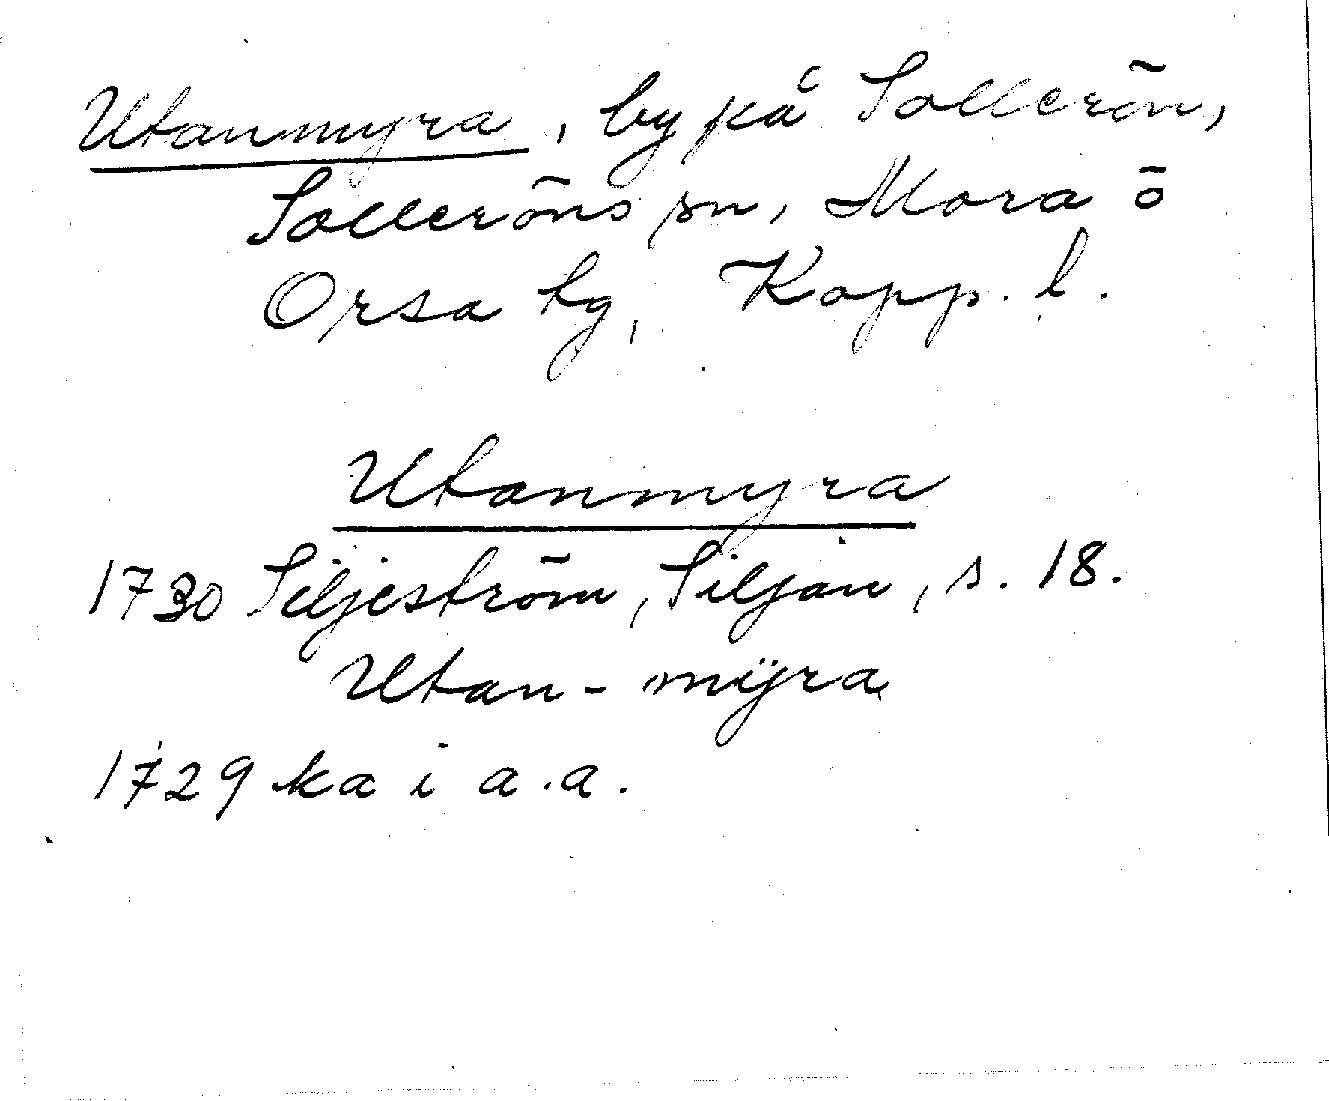 Utanmyra, by på Sollerön,
Solleröns sn, Mora o
Orsa tg, Kopp. l.
Utanmyra
1730 Siljeström, Siljan, s. 18.
Utan-mÿra
1729 ka i a.a.